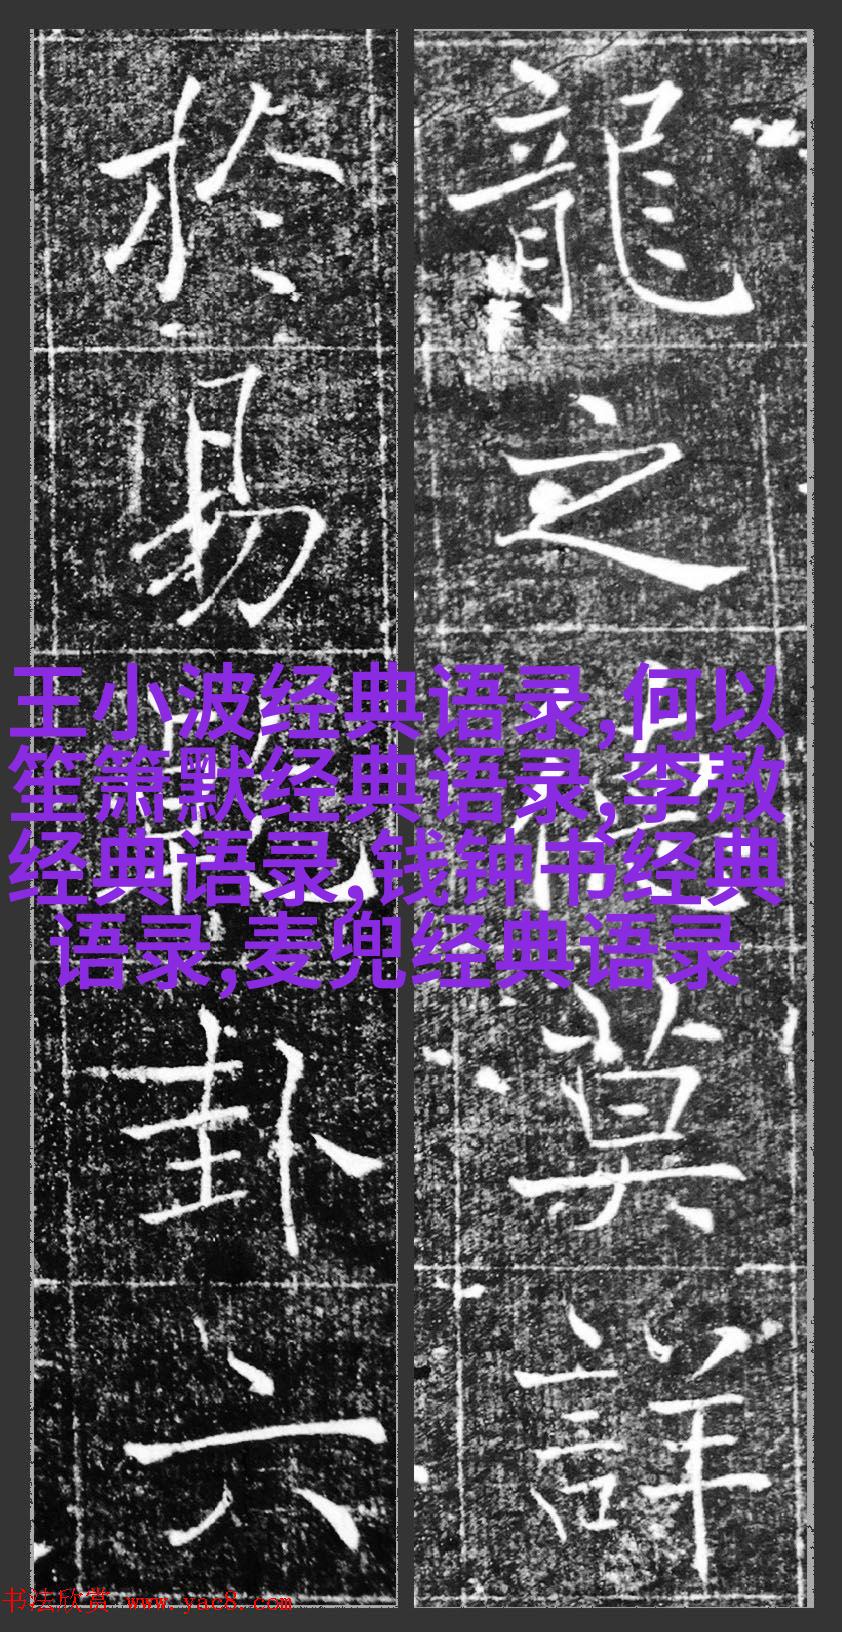 龍之莫詳
於易卦六
王小波经典语录,何以
笙箫默经典语录,李敖
经典语录,钱钟书经典
语录,麦兜经典语录
书法欣赏 www.yac8.com